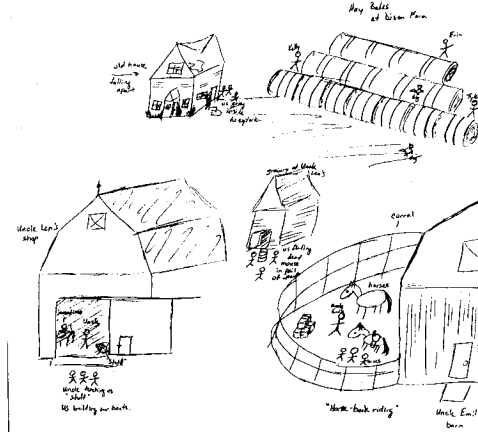 Hay Bales
at Dixon Farm
Erin
Kelly
old house
falling
apart
us going
inside
to explore
granary at Uncle
Len's
us finding
dead
mouse
in pail
of
Uncle Len's
shop
Uncle
"stuff"
Uncle teaching us
"stuff"
Us building our boats.
corral
horses
us
"Horse-back riding"
Uncle Emil
barn